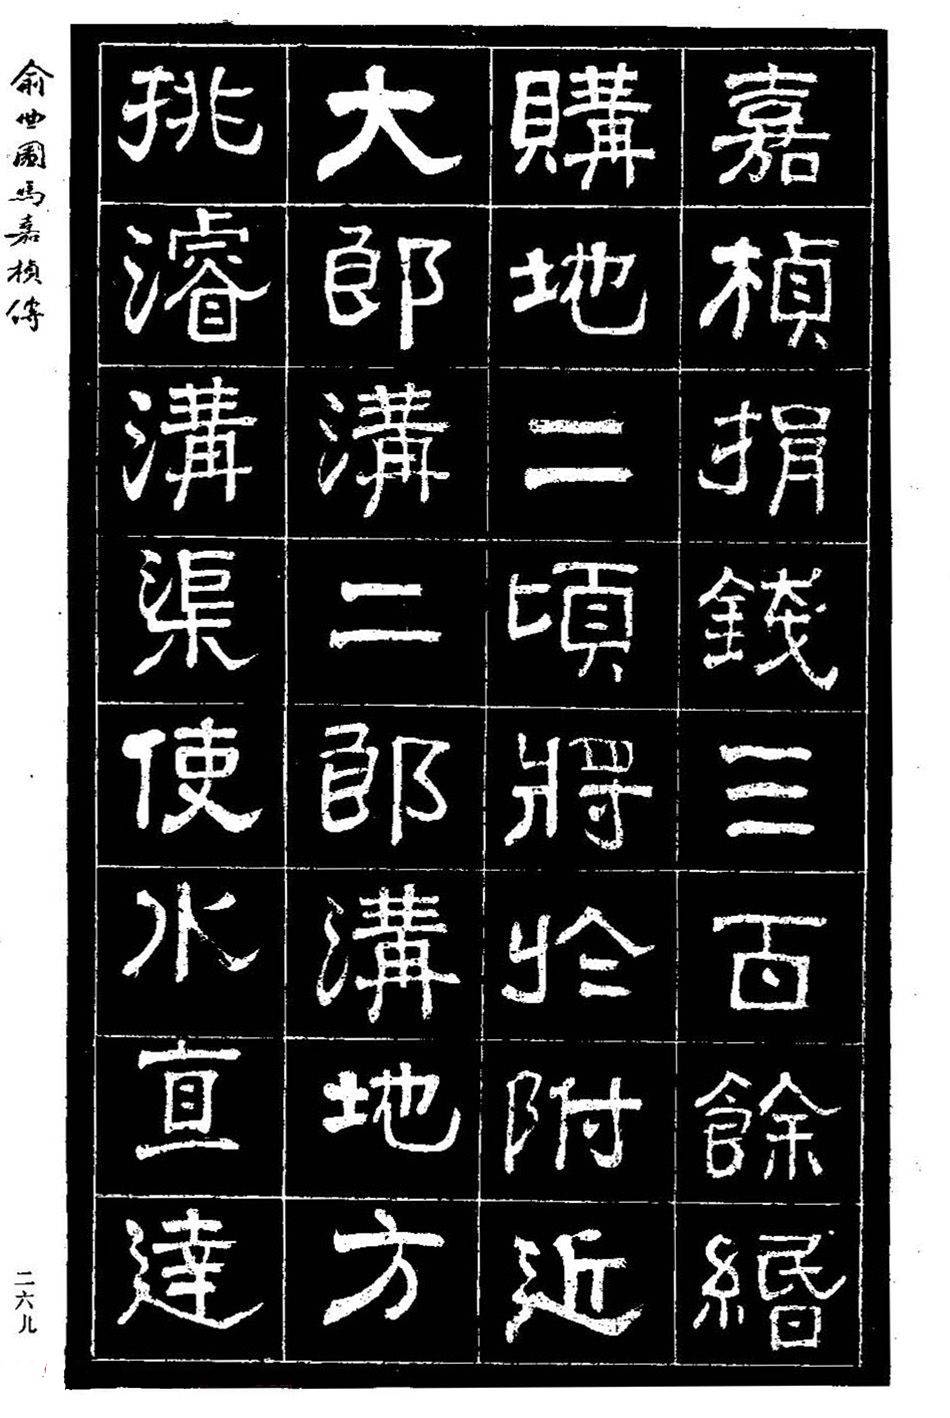 嘉楨捐錢三百餘緡
購地二頃將於附近
大郎溝二郎溝地方
挑濬溝渠使水直達
俞世圖馮嘉楨傳
二六九